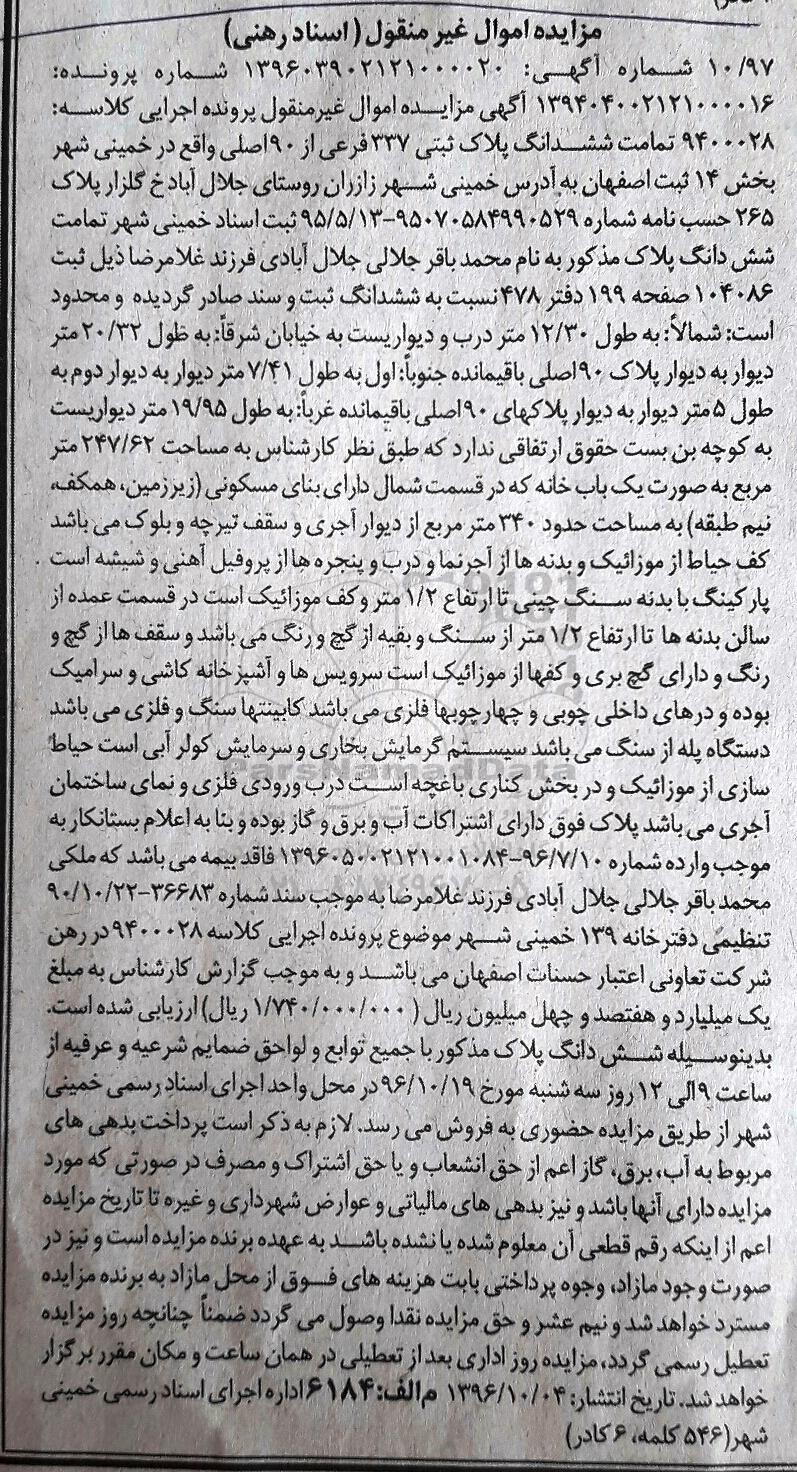 مزایده اموال غیر منقول (اسناد رهنی)
۱۰/۹۷ شماره آگهی: ۱۳۹۶۰۳۹۰۲۱۲۱۰۰۰۰۲۰ شماره پرونده:
۱۳۹۴۰۴۰۰۲۱۲۱۰۰۰۰۱۶ آگهی مزایده اموال غیرمنقول پرونده اجرایی کلاسه:
۹۴۰۰۰۲۸ تمامت ششدانگ پلاک ثبتی ۳۳۷ فرعی از ۹۰ اصلی واقع در خمینی شهر
بخش ۱۴ ثبت اصفهان به آدرس خمینی شهر زازران روستای جلال آباد خ گلزار پلاک
۲۶۵ حسب نامه شماره ۹۵۰۷۰۵۸۴۹۹۰۵۲۹-۹۵/۵/۱۳ ثبت اسناد خمینی شهر تمامت
شش دانگ پلاک مذکور به نام محمد باقر جلالی جلال آبادی فرزند غلامرضا ذیل ثبت
۱۰۴۰۸۶ صفحه ۱۹۹ دفتر ۴۷۸ نسبت به ششدانگ ثبت و سند صادر گردیده و محدود
است: شمالاً: به طول ۱۲/۳۰ متر درب و دیواریست به خیابان شرقاً: به طول ۲۰/۳۲ متر
دیوار به دیوار پلاک ۹۰ اصلی باقیمانده جنوباً: اول به طول ۷/۴۱ متر دیوار به دیوار دوم به
طول ۵ متر دیوار به دیوار پلاکهای ۹۰ اصلی باقیمانده غرباً: به طول ۱۹/۹۵ متر دیواریست
به کوچه بن بست حقوق ارتفاقی ندارد که طبق نظر کارشناس به مساحت ۲۴۷/۶۲ متر
مربع به صورت یک باب خانه که در قسمت شمال دارای بنای مسکونی (زیرزمین، همکف،
نیم طبقه) به مساحت حدود ۳۴۰ متر مربع از دیوار آجری و سقف تیرچه و بلوک می باشد
کف حیاط از موزائیک و بدنه ها از آجرنما و درب و پنجره ها از پروفیل آهنی و شیشه است .
پارکینگ با بدنه سنگ چینی تا ارتفاع ۱/۲ متر و کف موزائیک است در قسمت عمده از
سالن بدنه ها تا ارتفاع ۱/۲ متر از سنگ و بقیه از گچ و رنگ می باشد و سقف ها از گچ و
رنگ و دارای گچ بری و کفها از موزائیک است سرویس ها و آشپزخانه کاشی و سرامیک
بوده و درهای داخلی چوبی و چهارچوبها فلزی می باشد کابینتها سنگ و فلزی می باشد
دستگاه پله از سنگ می باشد سیستم گرمایش بخاری و سرمایش کولر آبی است حیاط
سازی از موزائیک و در بخش کناری باغچه است درب ورودی فلزی و نمای ساختمان
آجری می باشد پلاک فوق دارای اشتراکات آب و برق و گاز بوده و بنا به اعلام بستانکار به
موجب وارده شماره ۱۳۹۶۰۵۰۰۲۱۲۱۰۰۱۰۸۴-۹۶/۷/۱۰ فاقد بیمه می باشد که ملکی
محمد باقر جلالی جلال آبادی فرزند غلامرضا به موجب سند شماره ۳۶۶۸۳-۹۰/۱۰/۲۲
تنظیمی دفترخانه ۱۳۹ خمینی شهر موضوع پرونده اجرایی کلاسه ۹۴۰۰۰۲۸ در رهن
شرکت تعاونی اعتبار حسنات اصفهان می باشد و به موجب گزارش کارشناس به مبلغ
یک میلیارد و هفتصد و چهل میلیون ریال ( ۱/۷۴۰/۰۰۰/۰۰۰ ریال) ارزیابی شده است.
بدینوسیله شش دانگ پلاک مذکور با جمیع توابع و لواحق ضمایم شرعیه و عرفیه از
ساعت ۹ الی ۱۲ روز سه شنبه مورخ ۹۶/۱۰/۱۹ در محل واحد اجرای اسناد رسمی خمینی
شهر از طریق مزایده حضوری به فروش می رسد. لازم به ذکر است پرداخت بدهی های
مربوط به آب، برق، گاز اعم از حق انشعاب و یا حق اشتراک و مصرف در صورتی که مورد
مزایده دارای آنها باشد و نیز بدهی های مالیاتی و عوارض شهرداری و غیره تا تاریخ مزایده
اعم از اینکه رقم قطعی آن معلوم شده یا نشده باشد به عهده برنده مزایده است و نیز در
صورت وجود مازاد، وجوه پرداختی بابت هزینه های فوق از محل مازاد به برنده مزایده
مسترد خواهد شد و نیم عشر و حق مزایده نقدا وصول می گردد ضمناً چنانچه روز مزایده
تعطیل رسمی گردد، مزایده روز اداری بعد از تعطیلی در همان ساعت و مکان مقرر برگزار
خواهد شد. تاریخ انتشار: ۱۳۹۶/۱۰/۰۴ م الف: ۶۱۸۴ اداره اجرای اسناد رسمی خمینی
شهر(۵۴۶ کلمه، ۶ کادر)
ParsNamadData